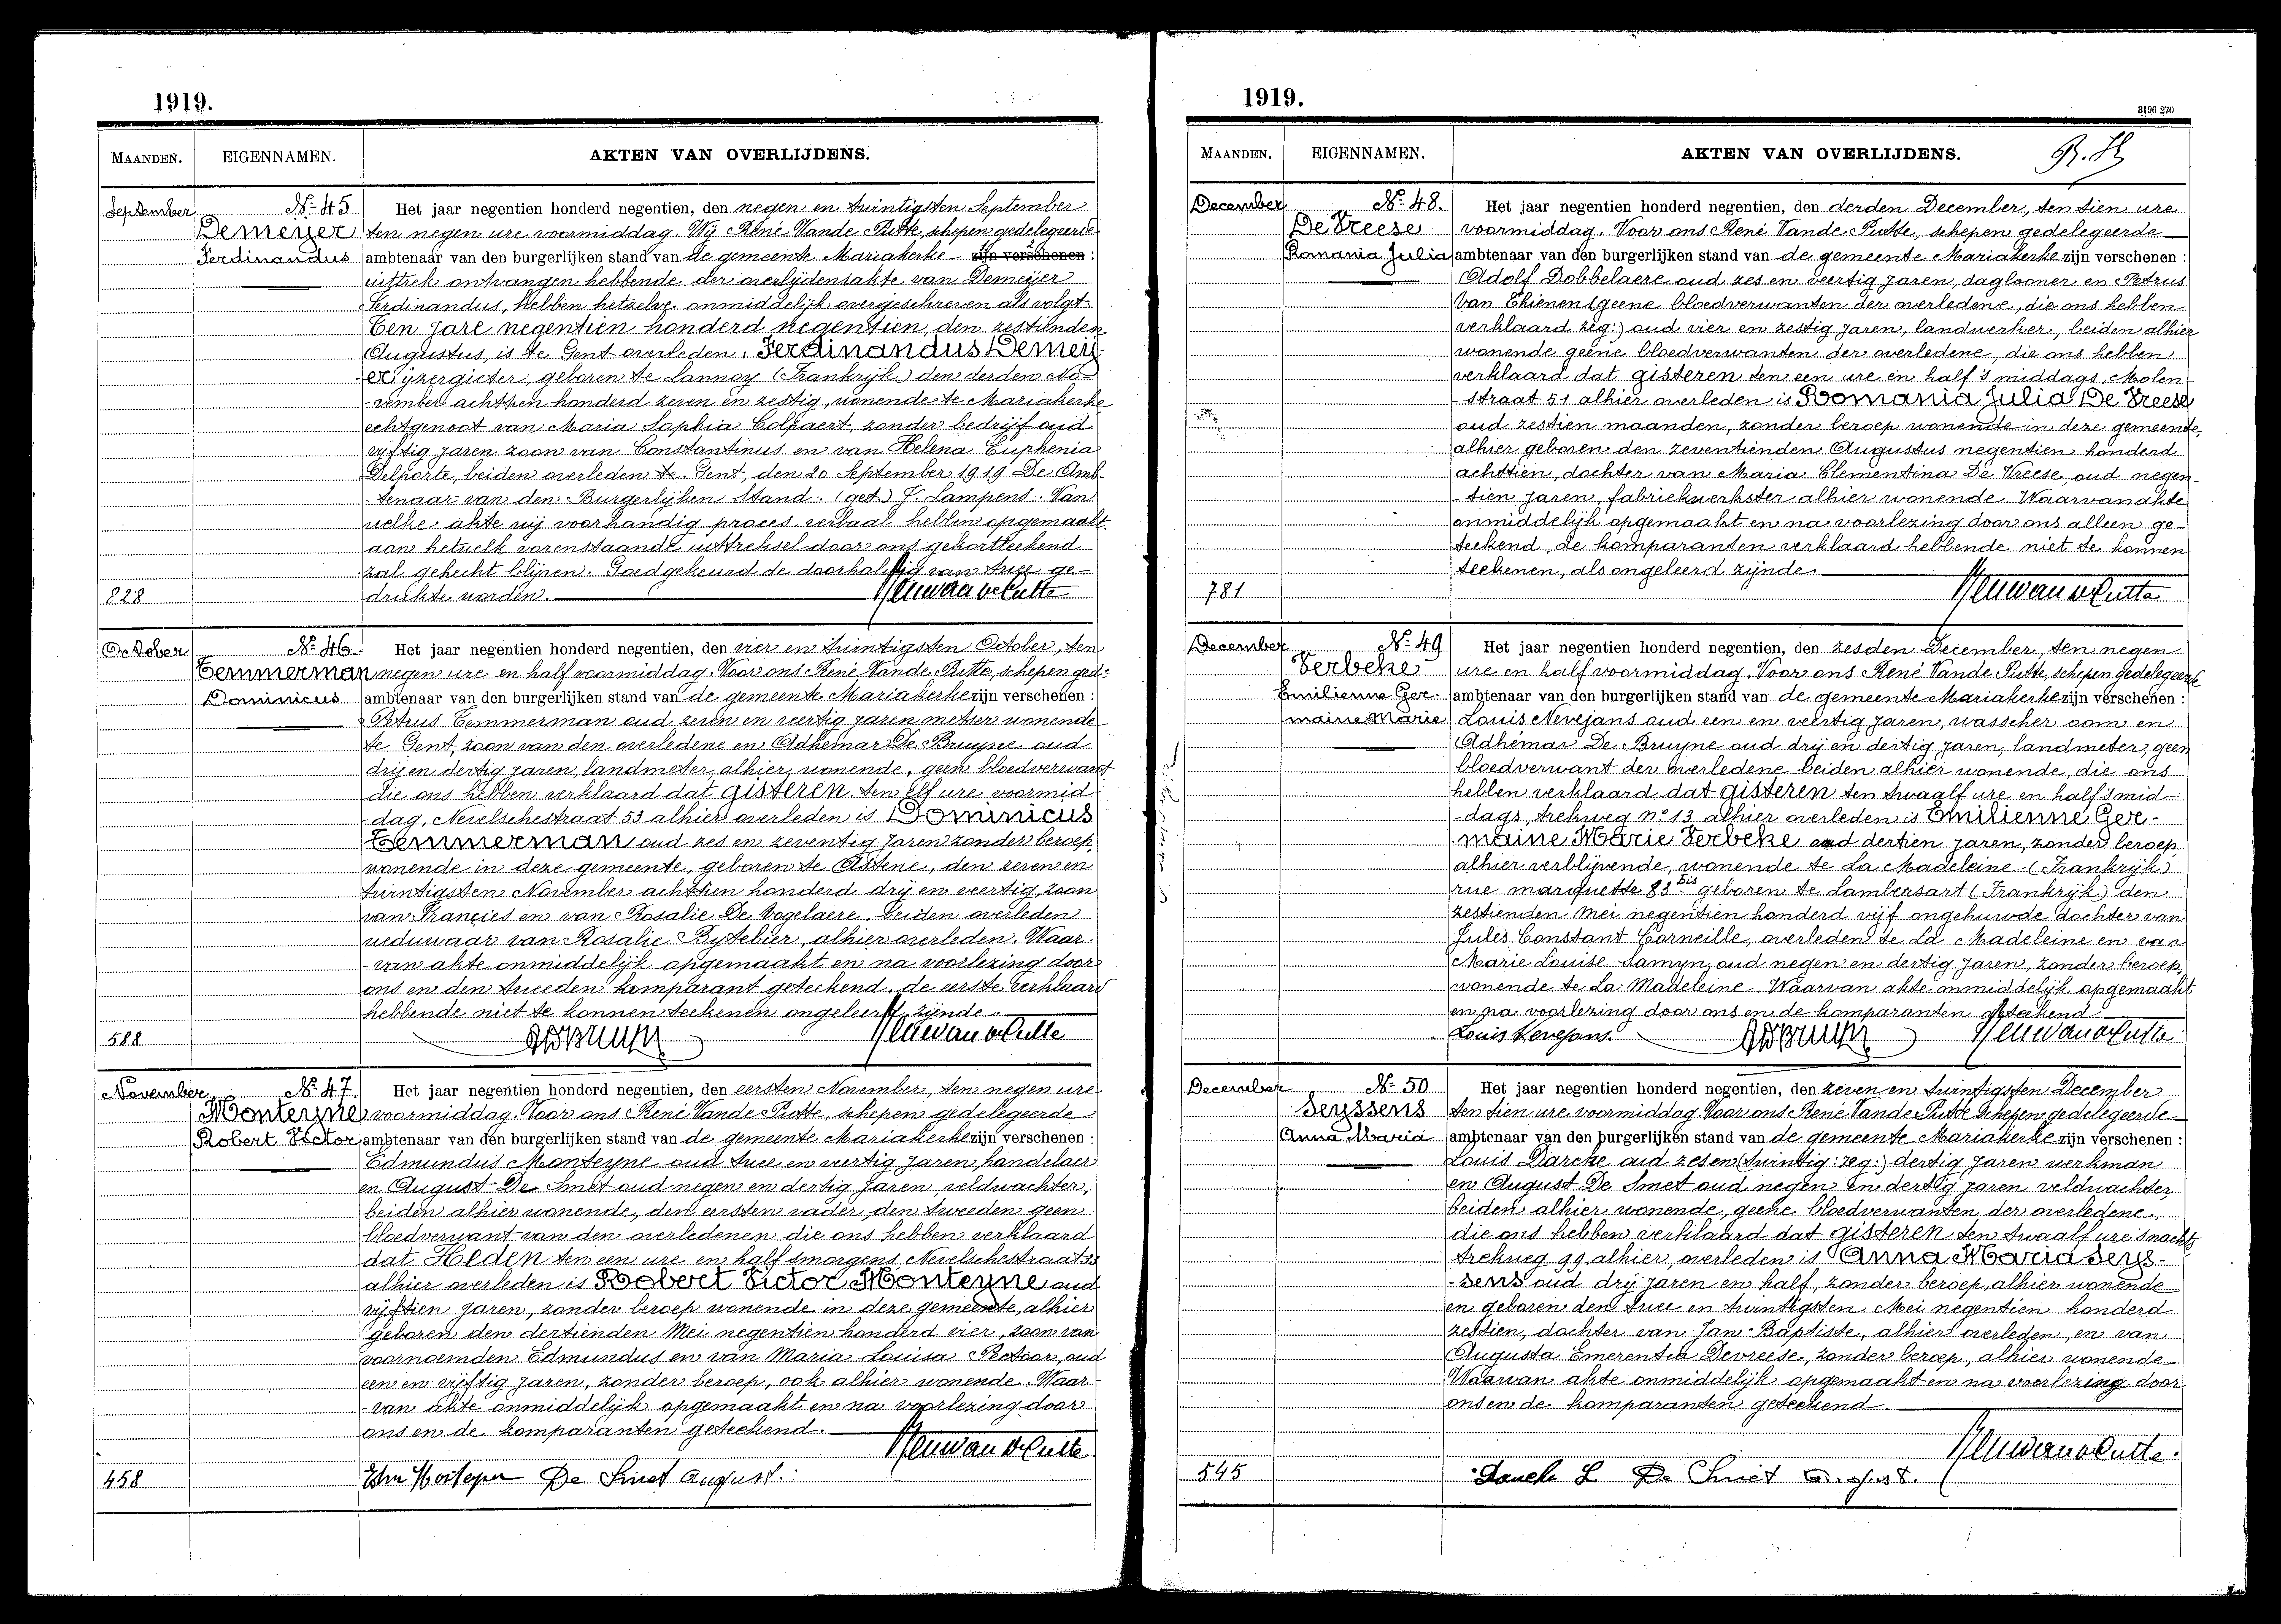 1919.
MAANDEN. EIGENNAMEN. AKTEN VAN OVERLIJDENS.
September
N.º 45
Demeyer
Ferdinandus
Het jaar negentien honderd negentien, den negen en twintigsten September
ten negen ure voormiddag. Wij René Vande Putte, schepen gedelegeerde
ambtenaar van den burgerlijken stand van de gemeente Mariakerke zijn verschenen :
uittrek ontvangen hebbende der overlijdensakte van Demeijer
Ferdinandus, hebben hetzelve onmiddelijk overgeschreven als volgt
Ten jare negentien honderd negentien, den zestienden
Augustus, is te Gent overleden. Ferdinandus Demeij-
er ijzergieter, geboren te Lannoy (Frankrijk) den derden No-
vember achttien honderd zeven en zestig, wonende te Mariakerke
echtgenoot van Maria Sophia Colpaert, zonder bedrijf oud
vijftig jaren zoon van Constantinus en van Helena Euphenia
Delporte, beiden overleden te Gent, den 20 September 1919 De Amb-
tenaar van den Burgerlijken Stand. (get.) J. Lampens. Van
welke akte wij voorhandig proces verbaal hebben opgemaakt
aan hetwelk vorenstaande uittreksel door ons gekortteekend
zal gehecht blijven. Goedgekeurd de doorhaling van twee ge-
drukte worden.
828
October
N.º 46
Temmerman
Dominicus
Het jaar negentien honderd negentien, den vier en twintigsten October, ten
negen ure en half voormiddag. Voor ons René Vande Putte, schepen ged:
ambtenaar van den burgerlijken stand van de gemeente Mariakerke zijn verschenen :
Petrus Temmerman oud zeven en veertig jaren metser wonende
te Gent, zoon van den overledene en Adhemar De Bruyne oud
drij en dertig jaren, landmeter, alhier wonende, geen bloedverwant
die ons hebben verklaard dat gisteren ten elf ure voormid-
dag, Nevelschestraat 53 alhier overleden is Dominicus
Temmerman oud zes en zeventig jaren zonder beroep,
wonende in deze gemeente, geboren te Astene, den zeven en
twintigsten November achttien honderd drij en veertig, zoon
van Francies en van Rosalie De Vogelaere. Beiden overleden
weduwaar van Rosalie Bytebier, alhier overleden. Waar-
van akte onmiddelijk opgemaakt en na voorlezing door
ons en den tweeden komparant geteekend. de eerste verklaard
hebbende niet te konnen teekenen ongeleerd zijnde.
588
November
N.º 47
Monteyne
Robert Victor
Het jaar negentien honderd negentien, den eersten November, ten negen ure
voormiddag. Voor ons René Vande Putte, schepen gedelegeerde
ambtenaar van den burgerlijken stand van de gemeente Mariakerke zijn verschenen :
Edmundus Monteyne oud twee en veertig jaren, handelaer
en August De Smet oud negen en dertig jaren, veldwachter,
beiden alhier wonende, den eersten vader, den tweeden geen
bloedverwant van den overledenen die ons hebben verklaard
dat Heden ten een ure en half smorgens, Nevelschestraat 33
alhier overleden is Robert Victor Monteyne oud
vijftien jaren, zonder beroep wonende in deze gemeente, alhier
geboren den dertienden Mei negentien honderd vier, zoon van
voornoemden Edmundus en van Maria Louisa Pectoor, oud
een en vijftig jaren, zonder beroep, ook alhier wonende. Waar-
van akte onmiddelijk opgemaakt en na voorlezing door
ons en de komparanten geteekend.
De Smet August.
458
1919.
3196 270
MAANDEN. EIGENNAMEN. AKTEN VAN OVERLIJDENS.
December
N.º 48.
De Vreese
Romania Julia
Het jaar negentien honderd negentien, den derden December, ten tien ure
voormiddag. Voor ons René Vande Putte, schepen gedelegeerde
ambtenaar van den burgerlijken stand van de gemeente Mariakerke zijn verschenen :
Adolf Dobbelaere oud zes en veertig jaren, daglooner en Petrus
Van Thienen (geene bloedverwanten der overledene, die ons hebben
verklaard zeg:) oud vier en zestig jaren, landwerker, beiden alhier
wonende geene bloedverwanten der overledene, die ons hebben
verklaard dat gisteren ten een ure en half 's middags, Molen-
straat 51 alhier overleden is Romania Julia De Vreese
oud zestien maanden, zonder beroep wonende in deze gemeente,
alhier geboren den zeventienden Augustus negentien honderd
achttien, dochter van Maria Clementina De Vreese, oud negen-
tien jaren, fabriekwerkster alhier wonende. Waarvan akte
onmiddelijk opgemaakt en na voorlezing door ons alleen ge-
teekend, de komparanten verklaard hebbende niet te konnen
teekenen, als ongeleerd zijnde.
781
December
N.º 49
Verbeke
Emilienne Ger-
maine Marie
Het jaar negentien honderd negentien, den zesden December, ten negen
ure en half voormiddag. Voor ons René Vande Putte, schepen gedelegeerde
ambtenaar van den burgerlijken stand van de gemeente Mariakerke zijn verschenen :
Louis Nevejans oud een en veertig jaren, wasscher oom en
Adhémar De Bruyne oud drij en dertig jaren, landmeter, geen
bloedverwant der overledene beiden alhier wonende, die ons
hebben verklaard dat gisteren ten twaalf ure en half 's mid-
dags, trekweg n.º 13 alhier overleden is Emilienne Ger-
maine Marie Verbeke oud dertien jaren, zonder beroep
alhier verblijvende, wonende te La Madeleine (Frankrijk)
rue marquette 83 bis geboren te Lambersart (Frankrijk) den
zestienden Mei negentien honderd vijf ongehuwde dochter van
Jules Constant Corneille, overleden te La Madeleine en van
Marie Louise Samyn, oud negen en dertig jaren, zonder beroep,
wonende te La Madeleine. Waarvan akte onmiddelijk opgemaakt
en na voorlezing door ons en de komparanten geteekend.
Louis Nevejans.
December
N.º 50
Seyssens
Anna Maria
Het jaar negentien honderd negentien, den zeven en twintigsten December
ten tien ure voormiddag Voor ons René Vande Putte schepen gedelegeerde
ambtenaar van den burgerlijken stand van de gemeente Mariakerke zijn verschenen :
Louis Darcke oud zes en (twintig: zeg:) dertig jaren werkman
en August De Smet oud negen en dertig jaren veldwachter
beiden alhier wonende, geene bloedverwanten der overledene,
die ons hebben verklaard dat gisteren ten twaalf ure 's nachts
trekweg 99, alhier, overleden is Anna Maria Seys-
sens oud drij jaren en half, zonder beroep, alhier wonende
en geboren den twee en twintigsten Mei negentien honderd
zestien, dochter van Jan-Baptiste, alhier overleden, en van
Augusta Emerentia Devreese, zonder beroep, alhier wonende
Waarvan akte onmiddelijk opgemaakt en na voorlezing door
ons en de komparanten geteekend
De Smet August.
545